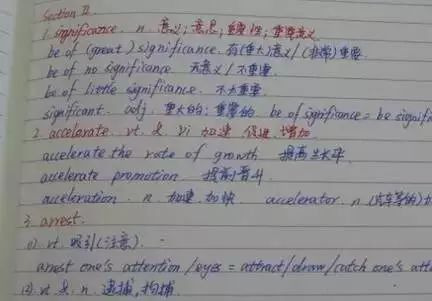 Section B
1. significance. n. 意义；意思；重要性；重要意义
be of (great) significance. 有(重大)意义/(非常)重要
be of no significance 无意义/不重要
be of little significance. 不太重要
significant. adj. 重大的；重要的 be of significance = be signifi
2. accelerate. vt. & vi 加速 促进 增加
accelerate the rate of growth 提高生长率
accelerate promotion 提前晋升
acceleration. n 加速. 加快. accelerator. n (汽车等的)加
3. arrest.
(1) vt 吸引(注意).
arrest one's attention/eyes = attract/draw/catch one's atte
(2). vt & n. 逮捕, 拘捕